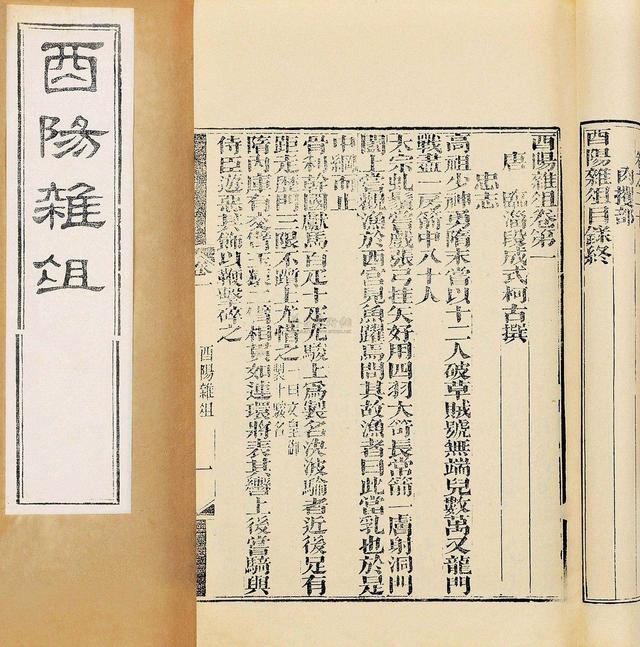 酉陽雜俎
肉攫部
酉陽雜俎目録終
酉陽雜俎卷第一
唐 臨淄段成式柯古撰
忠志
高祖少神勇隋末嘗以十二人破草賊號無端兒數萬又龍門
戰盡一房箭中八十人
太宗虬鬚嘗戲張弓挂矢好用四羽大笴長常箭一膚射洞門
闔上嘗觀漁於西宮見魚躍焉問其故漁者曰此當乳也於是
中網而止
骨利幹國獻馬百疋十疋尤駿上爲製名決波騟者近後足有
距走歷門三限不躓上尤惜之一曰文皇御製十驥名
隋內庫有交臂玉猨二臂相貫如連環將表其轡上後嘗騎與
侍臣遊惡其飾以鞭擊碎之
酉陽雜俎 一